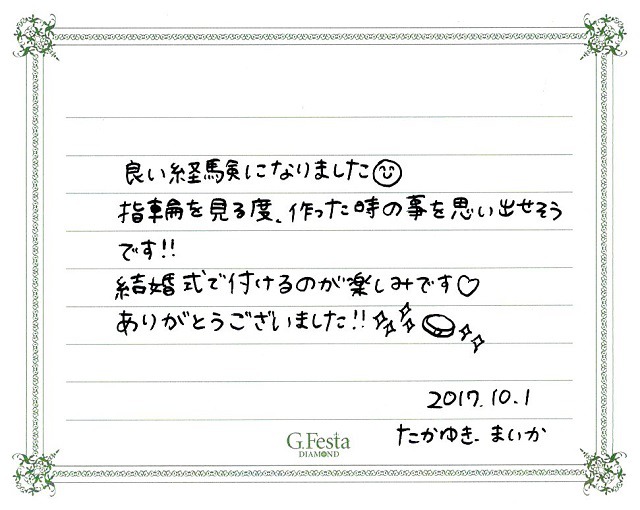 良い経験になりました
指輪を見る度、作った時の事を思い出せそう
です!!
結婚式で付けるのが楽しみです♡
ありがとうございました!!
2017.10.1
たかゆき、まいか
G.Festa
DIAMOND